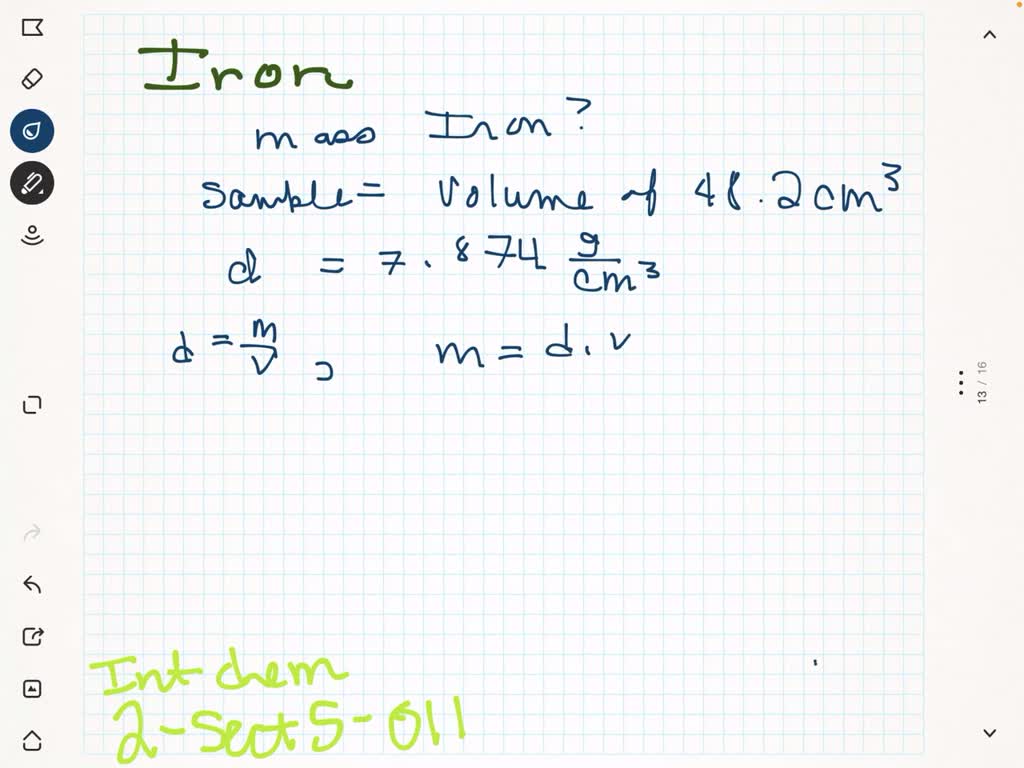 Iron
mass Iron?
sample = volume of 48.2 cm³
d = 7.874 g/cm³
d = m/v, m = d. v
Int chem
2-Sect 5-011
13 / 16